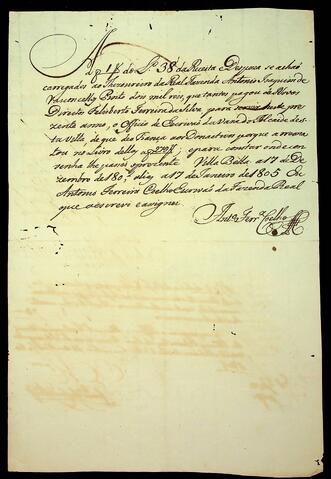 A f 1 V do L.º 38 da Receita Despeza se achaõ
carregados ao Thezoureiro da Real Fazenda Antonio Joaquim de
Vasconcellos Pinto dois mil reis, que tantos pagou de Novos
Direitos Feliciberto Ferreira da Silva para servir neste pre
zente anno, o Officio de Escrivaõ da Vara do Alcaide des
ta Villa, de que da fiança aos Donativos porque arrema
tou no Livro della a e para constar onde con
venha lhe passei o prezente Villa Bella a 17 de De
zembro de 180 digo a 17 de Janeiro de 1805 Eu
Antonio Ferreira Coelho Escrivaõ da Fazenda Real
que o escrevi e asignei
Ant.º Ferr.ª Coelho